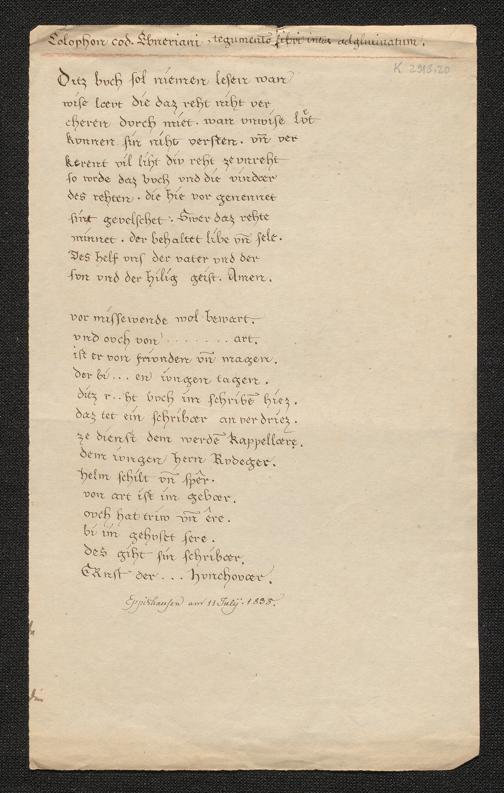 Colophon cod. Ebneriani, tegumento libri intus adglutinatum.
K 2913,20
Ditz bvch sol niemen lesen wan
wise lævt die daz reht niht ver
cheren dvrch miet. wan vnwise lv̊t
kvnnen sin niht versten. vn̄ ver
kerent vil liht div reht ze vnreht
so wrde daz bvch vnd die vindær
des rehten. die hie vor genennet
sint gevelschet. Swer daz rehte
minnet. der behaltet libe vn̄ sele.
Des helf vns der vater vnd der
svn vnd der hilig geist. Amen.
vor missewende wol bewart.
vnd ovch von . . . . . . . art.
ist er von frivnden vn̄ magen.
der bi . . . en ivngen tagen.
ditz r..ht bvch im schribē hiez.
daz tet ein schribær an verdriez.
ze dienst dem werdē kappellære.
dem ivngen hern Rvdeger.
helm schilt vn̄ spêr.
von art ist im gebær.
ovch hat triw vn̄ êre.
bi im gehvset sere.
des giht sin schribær.
ERnst der . . . hvnchovær.
Eppishausen am 11 July. 1838.